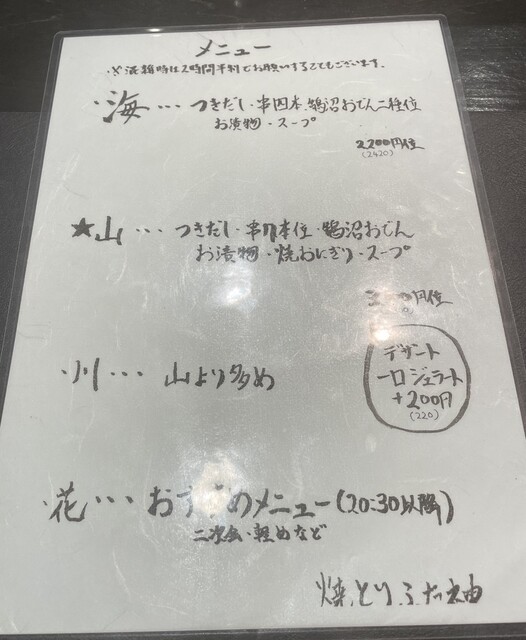 メニュー
※混雑時は2時間半制でお願いすることもございます。
・海・・・つきだし・串四本・鵠沼おでん二種位
お漬物・スープ
2200円位
(2420)
★山・・・つきだし・串八本位・鵠沼おでん
お漬物・焼おにぎり・スープ
円位
・川・・・山より多め
デザート
一口ジェラート
+200円
(220)
・花・・・おすすめメニュー(20:30以降)
二次会・軽めなど
焼とり